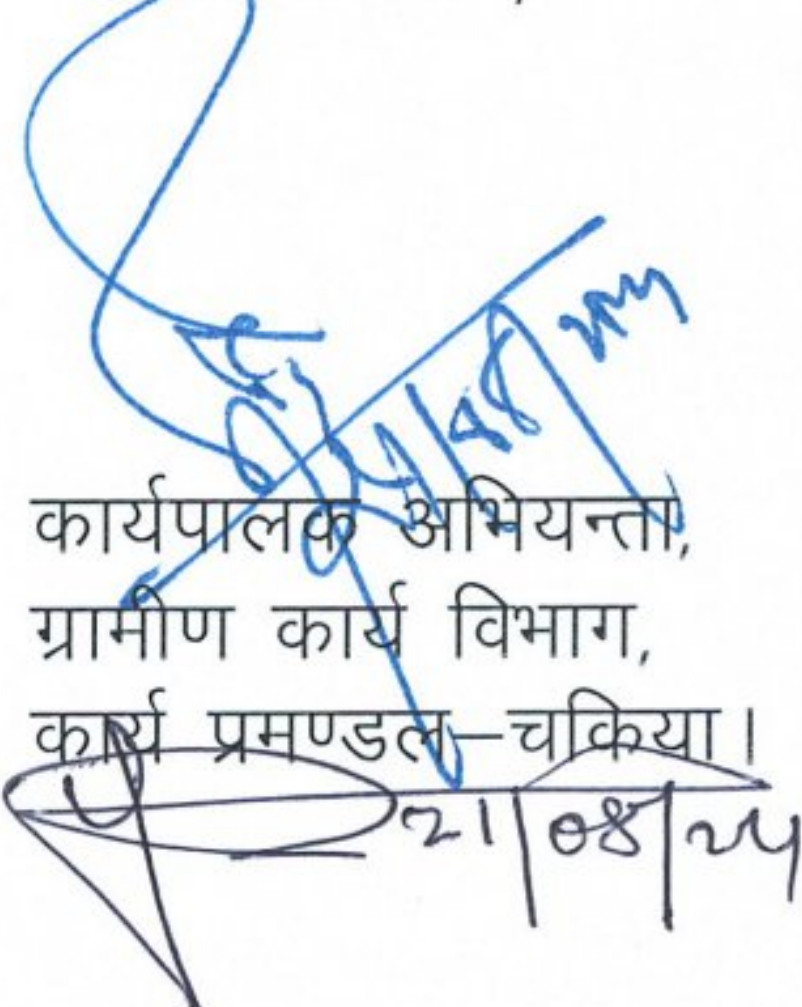 कार्यपालक अभियन्ता,
ग्रामीण कार्य विभाग,
कार्य प्रमण्डल–चकिया।
21/08/24